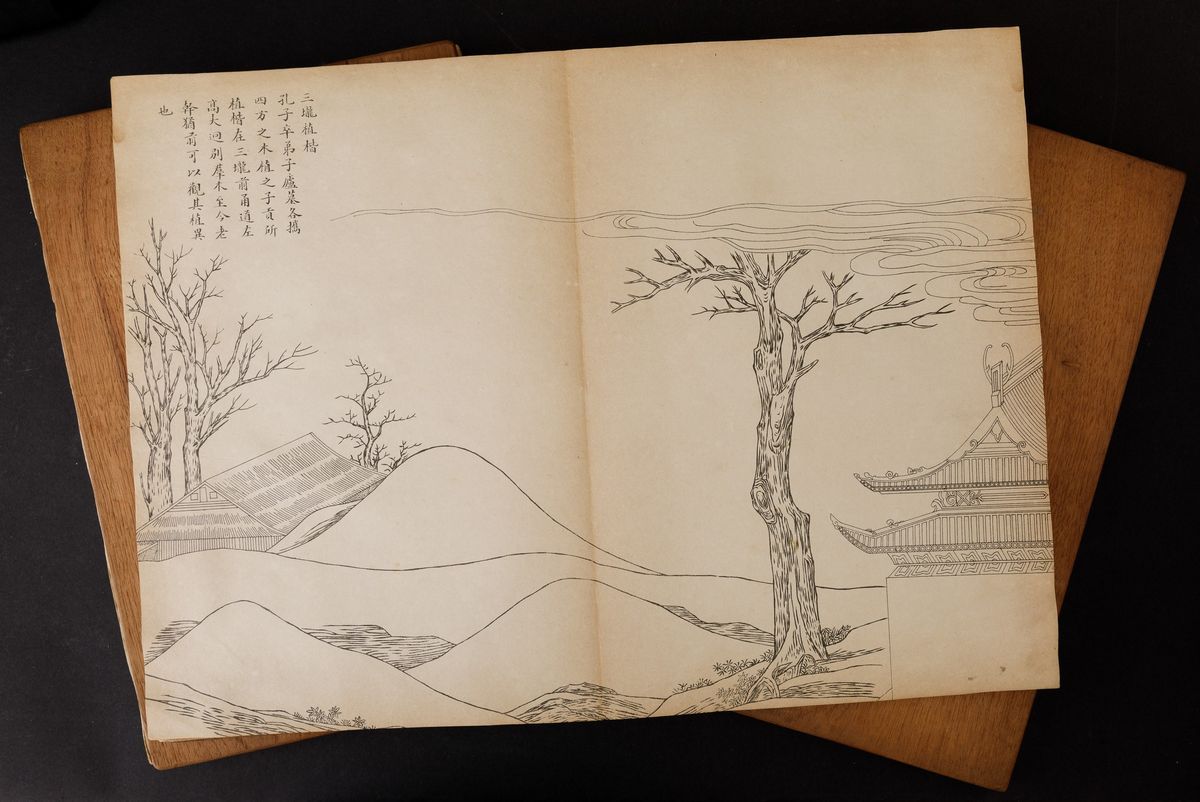 三壠植楷
孔子卒弟子廬墓各攜
四方之木植之子貢所
植楷在三壠前甬道左
高大迥別羣木至今老
幹猶前可以觀其植異
也